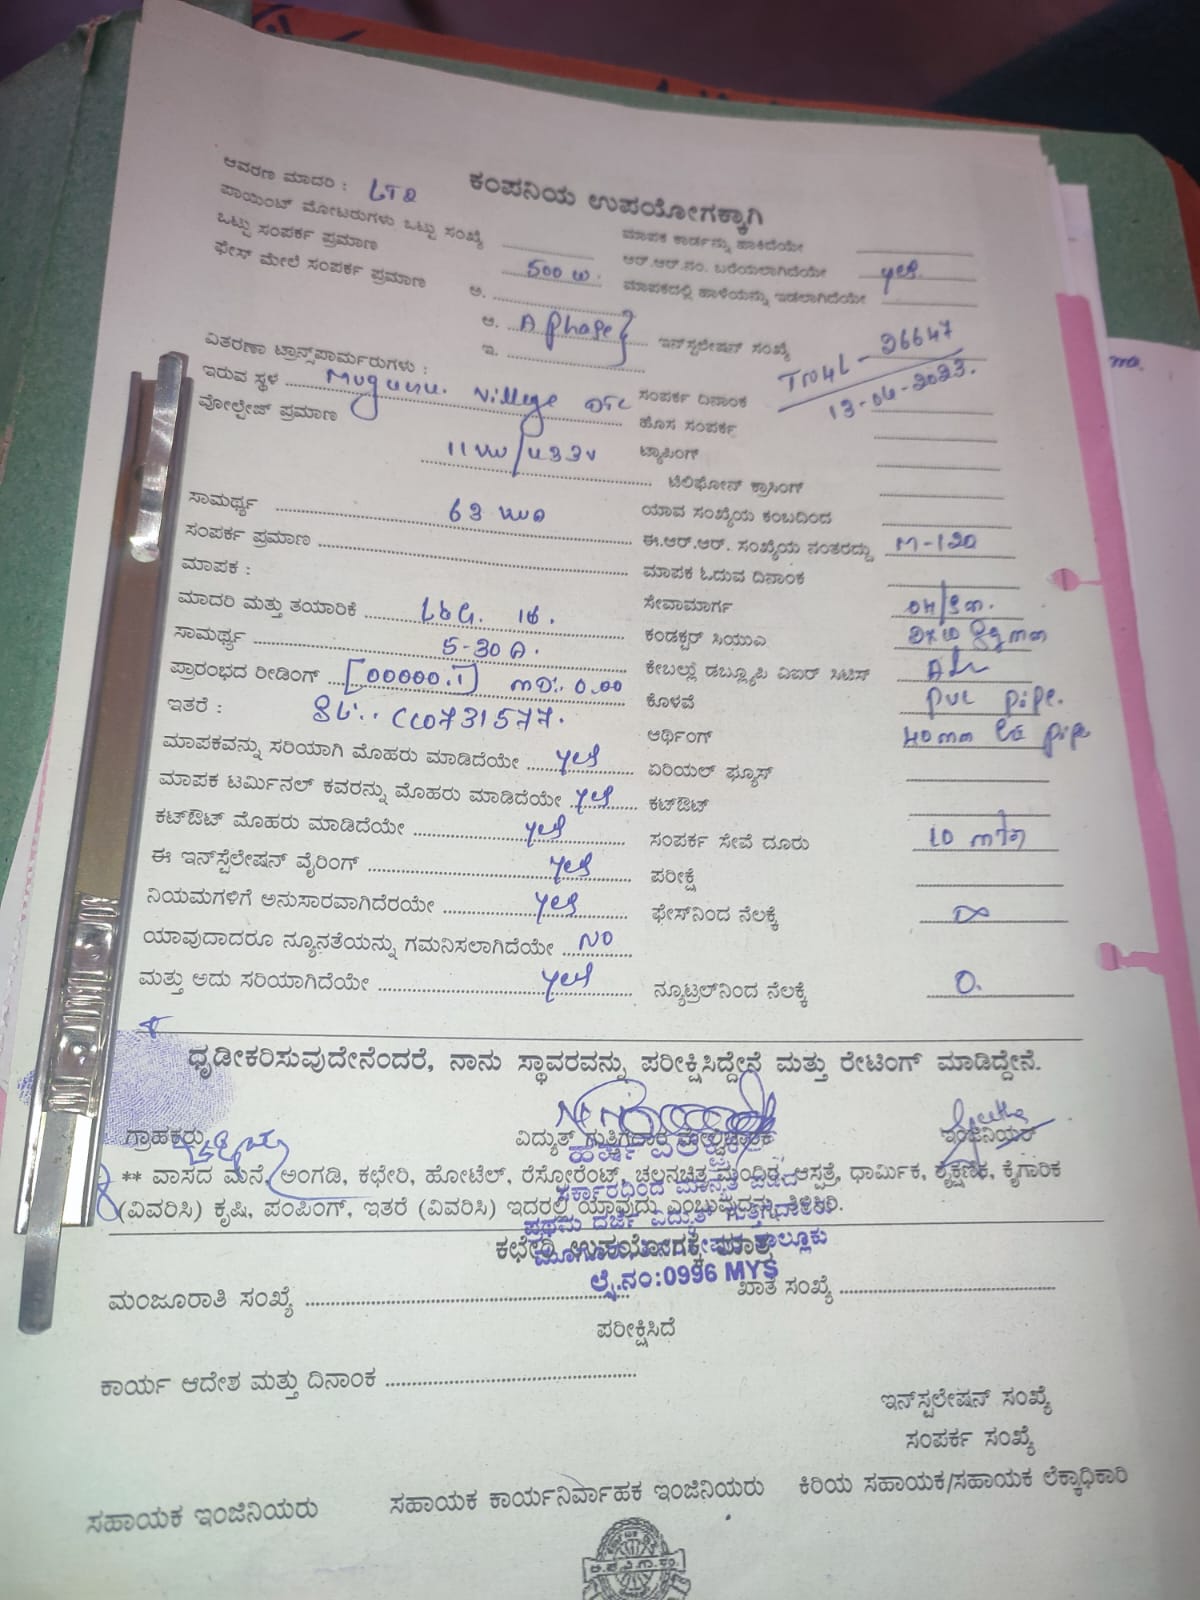 ಕಂಪನಿಯ ಉಪಯೋಗಕ್ಕಾಗಿ
ಆವರಣ ಮಾದರಿ : LT2
ಪಾಯಿಂಟ್ ಮೋಟರುಗಳು ಒಟ್ಟು ಸಂಖ್ಯೆ
ಒಟ್ಟು ಸಂಪರ್ಕ ಪ್ರಮಾಣ 500 W.
ಫೇಸ್ ಮೇಲೆ ಸಂಪರ್ಕ ಪ್ರಮಾಣ ಅ.
ಆ. A phase
ಇ.
ವಿತರಣಾ ಟ್ರಾನ್ಸ್‌ಫಾರ್ಮರುಗಳು :
ಇರುವ ಸ್ಥಳ Muguru. Village
ವೋಲ್ಟೇಜ್ ಪ್ರಮಾಣ
ಸಾಮರ್ಥ್ಯ 63
ಸಂಪರ್ಕ ಪ್ರಮಾಣ
ಮಾಪಕ :
ಮಾದರಿ ಮತ್ತು ತಯಾರಿಕೆ L&G.
ಸಾಮರ್ಥ್ಯ 5-30 A.
ಪ್ರಾರಂಭದ ರೀಡಿಂಗ್ [00000.1] MD:. 0.00
ಇತರೆ : SL:. CC0731577.
ಮಾಪಕವನ್ನು ಸರಿಯಾಗಿ ಮೊಹರು ಮಾಡಿದೆಯೇ yes
ಮಾಪಕ ಟರ್ಮಿನಲ್ ಕವರನ್ನು ಮೊಹರು ಮಾಡಿದೆಯೇ yes
ಕಟ್‌ಔಟ್ ಮೊಹರು ಮಾಡಿದೆಯೇ yes
ಈ ಇನ್‌ಸ್ಪೆಲೇಷನ್ ವೈರಿಂಗ್ yes
ನಿಯಮಗಳಿಗೆ ಅನುಸಾರವಾಗಿದೆರಯೇ yes
ಯಾವುದಾದರೂ ನ್ಯೂನತೆಯನ್ನು ಗಮನಿಸಲಾಗಿದೆಯೇ NO
ಮತ್ತು ಅದು ಸರಿಯಾಗಿದೆಯೇ yes
ಮಾಪಕ ಕಾರ್ಡನ್ನು ಹಾಕಿದೆಯೇ
ಆರ್.ಆರ್.ನಂ. ಬರೆಯಲಾಗಿದೆಯೇ yes.
ಮಾಪಕದಲ್ಲಿ ಹಾಳೆಯನ್ನು ಇಡಲಾಗಿದೆಯೇ
ಇನ್‌ಸ್ಟಲೇಷನ್ ಸಂಖ್ಯೆ
ಸಂಪರ್ಕ ದಿನಾಂಕ 13-04-2023.
ಹೊಸ ಸಂಪರ್ಕ
ಟ್ಯಾಪಿಂಗ್
ಟೆಲಿಫೋನ್ ಕ್ರಾಸಿಂಗ್
ಯಾವ ಸಂಖ್ಯೆಯ ಕಂಬದಿಂದ
ಈ.ಆರ್.ಆರ್. ಸಂಖ್ಯೆಯ ನಂತರದ್ದು M-120
ಮಾಪಕ ಓದುವ ದಿನಾಂಕ
ಸೇವಾಮಾರ್ಗ
ಕಂಡಕ್ಟರ್ ಸಿಯುಎ
ಕೇಬಲ್ಲು ಡಬ್ಲ್ಯೂಪಿ ವಿಐಆರ್ ಸಿಟಿಸ್
ಕೊಳವೆ PVC pipe.
ಆರ್ಥಿಂಗ್ 40mm GI pipe
ಏರಿಯಲ್ ಫ್ಯೂಸ್
ಕಟ್‌ಔಟ್
ಸಂಪರ್ಕ ಸೇವೆ ದೂರು
ಪರೀಕ್ಷೆ
ಫೇಸ್‌ನಿಂದ ನೆಲಕ್ಕೆ ∞
ನ್ಯೂಟ್ರಲ್‌ನಿಂದ ನೆಲಕ್ಕೆ 0.
ಧೃಡೀಕರಿಸುವುದೇನೆಂದರೆ, ನಾನು ಸ್ಥಾವರವನ್ನು ಪರೀಕ್ಷಿಸಿದ್ದೇನೆ ಮತ್ತು ರೇಟಿಂಗ್ ಮಾಡಿದ್ದೇನೆ.
ಗ್ರಾಹಕರು ವಿದ್ಯುತ್ ಗುತ್ತಿಗೆದಾರ ಇಂಜಿನಿಯರ್
** ವಾಸದ ಮನೆ, ಅಂಗಡಿ, ಕಛೇರಿ, ಹೋಟೆಲ್, ರೆಸ್ಟೋರೆಂಟ್, ಚಲನಚಿತ್ರ ಮಂದಿರ, ಆಸ್ಪತ್ರೆ, ಧಾರ್ಮಿಕ, ಶೈಕ್ಷಣಿಕ, ಕೈಗಾರಿಕ
(ವಿವರಿಸಿ) ಕೃಷಿ, ಪಂಪಿಂಗ್, ಇತರೆ (ವಿವರಿಸಿ) ಇದರಲ್ಲಿ ಯಾವುದು ಎಂಬುವುದನ್ನು ತಿಳಿಸಿರಿ.
ಕಛೇರಿ ಉಪಯೋಗಕ್ಕೆ ಮಾತ್ರ
ಲೈ.ನಂ:0996 MYS
ಮಂಜೂರಾತಿ ಸಂಖ್ಯೆ ಖಾತೆ ಸಂಖ್ಯೆ
ಪರೀಕ್ಷಿಸಿದೆ
ಕಾರ್ಯ ಆದೇಶ ಮತ್ತು ದಿನಾಂಕ
ಇನ್‌ಸ್ಟಲೇಷನ್ ಸಂಖ್ಯೆ
ಸಂಪರ್ಕ ಸಂಖ್ಯೆ
ಸಹಾಯಕ ಇಂಜಿನಿಯರು ಸಹಾಯಕ ಕಾರ್ಯನಿರ್ವಾಹಕ ಇಂಜಿನಿಯರು ಕಿರಿಯ ಸಹಾಯಕ/ಸಹಾಯಕ ಲೆಕ್ಕಾಧಿಕಾರಿ